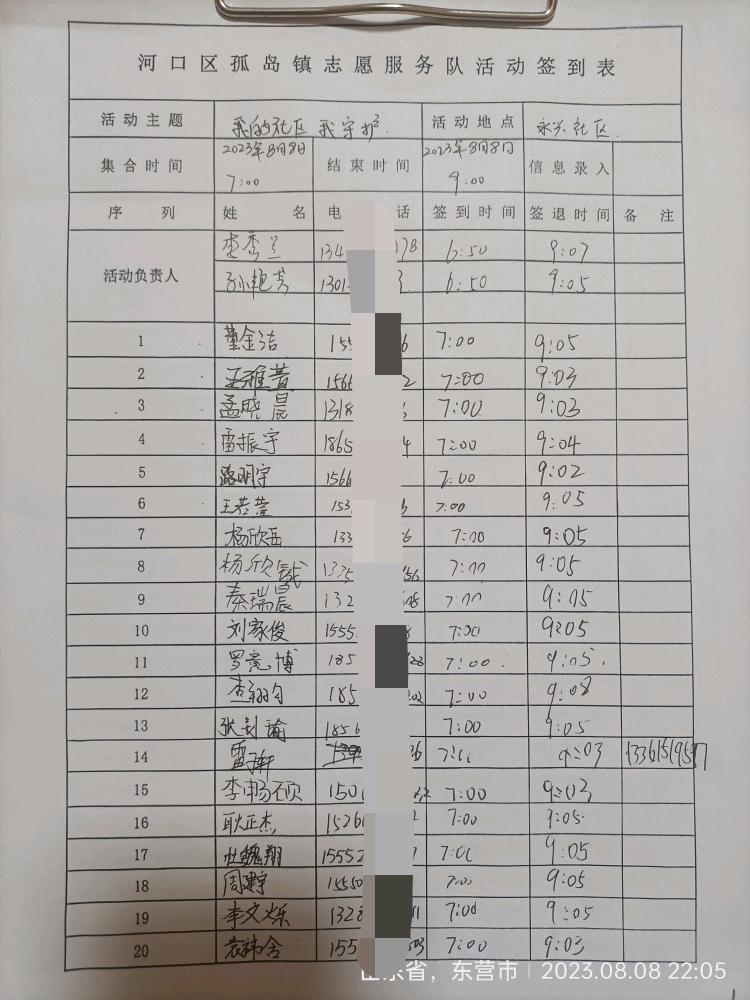 河口区孤岛镇志愿服务队活动签到表
活动主题 我的社区 我守护 活动地点 永兴社区.
集合时间 2023年8月8日 7:00 结束时间 2023年8月8日 9:00 信息录入
序列 姓名 电话 签到时间 签退时间 备注
活动负责人 李秀兰 134 178 6:50 9:07
孙艳芳 1301 6:50 9:05
1 董金洁 155 6 7:00 9:05
2 王雅萱 156 2 7:00 9:03
3 孟晓晨 1318 7:00 9:03
4 雷振宇 1865 4 7:00 9:04
5 路明宇 1566 7:00 9:02
6 王若萱 153 7:00 9:05
7 杨欣岳 133 6 7:00 9:05
8 杨欣 1335 56 7:00 9:05
9 秦瑞晨 132 7:00 9:05
10 刘家俊 1555 7:00 9:05
11 罗竞博 185 28 7:00. 9:05.
12 185 02 7:00 9:08
13 张 瑜 1856 7:00 9:05
14 雷 36 7:00 9:03
15 李畅硕 150 7:00 9:03
16 耿正杰 1526 7:00 9:05
17 杜魏翔 15552 7:00 9:05
18 周 1550 7:00 9:05
19 李文烁 1328 7:00 9:05
20 155 503 7:00 9:03
东省，东营市 2023.08.08 22:05